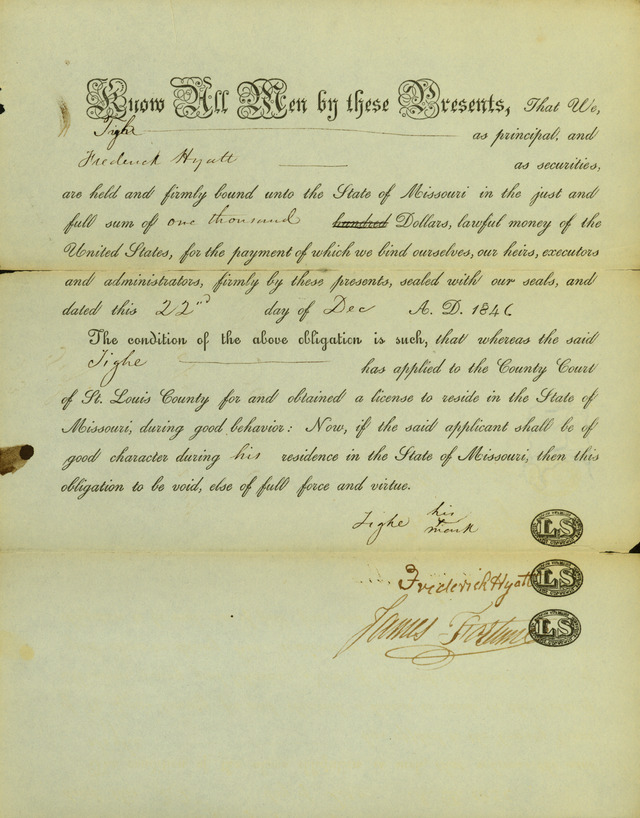 Know All Men by these Presents, That We,
Tighe as principal, and
Frederick Hyatt as securities,
are held and firmly bound unto the State of Missouri in the just and
full sum of one thousand hundred Dollars, lawful money of the
United States, for the payment of which we bind ourselves, our heirs, executors
and administrators, firmly by these presents, sealed with our seals, and
dated this 22nd day of Dec A. D. 1846
The condition of the above obligation is such, that whereas the said
Tighe has applied to the County Court
of St. Louis County for and obtained a license to reside in the State of
Missouri, during good behavior: Now, if the said applicant shall be of
good character during his residence in the State of Missouri, then this
obligation to be void, else of full force and virtue.
Tighe his mark LS
Frederick Hyatt LS
James Fortune LS